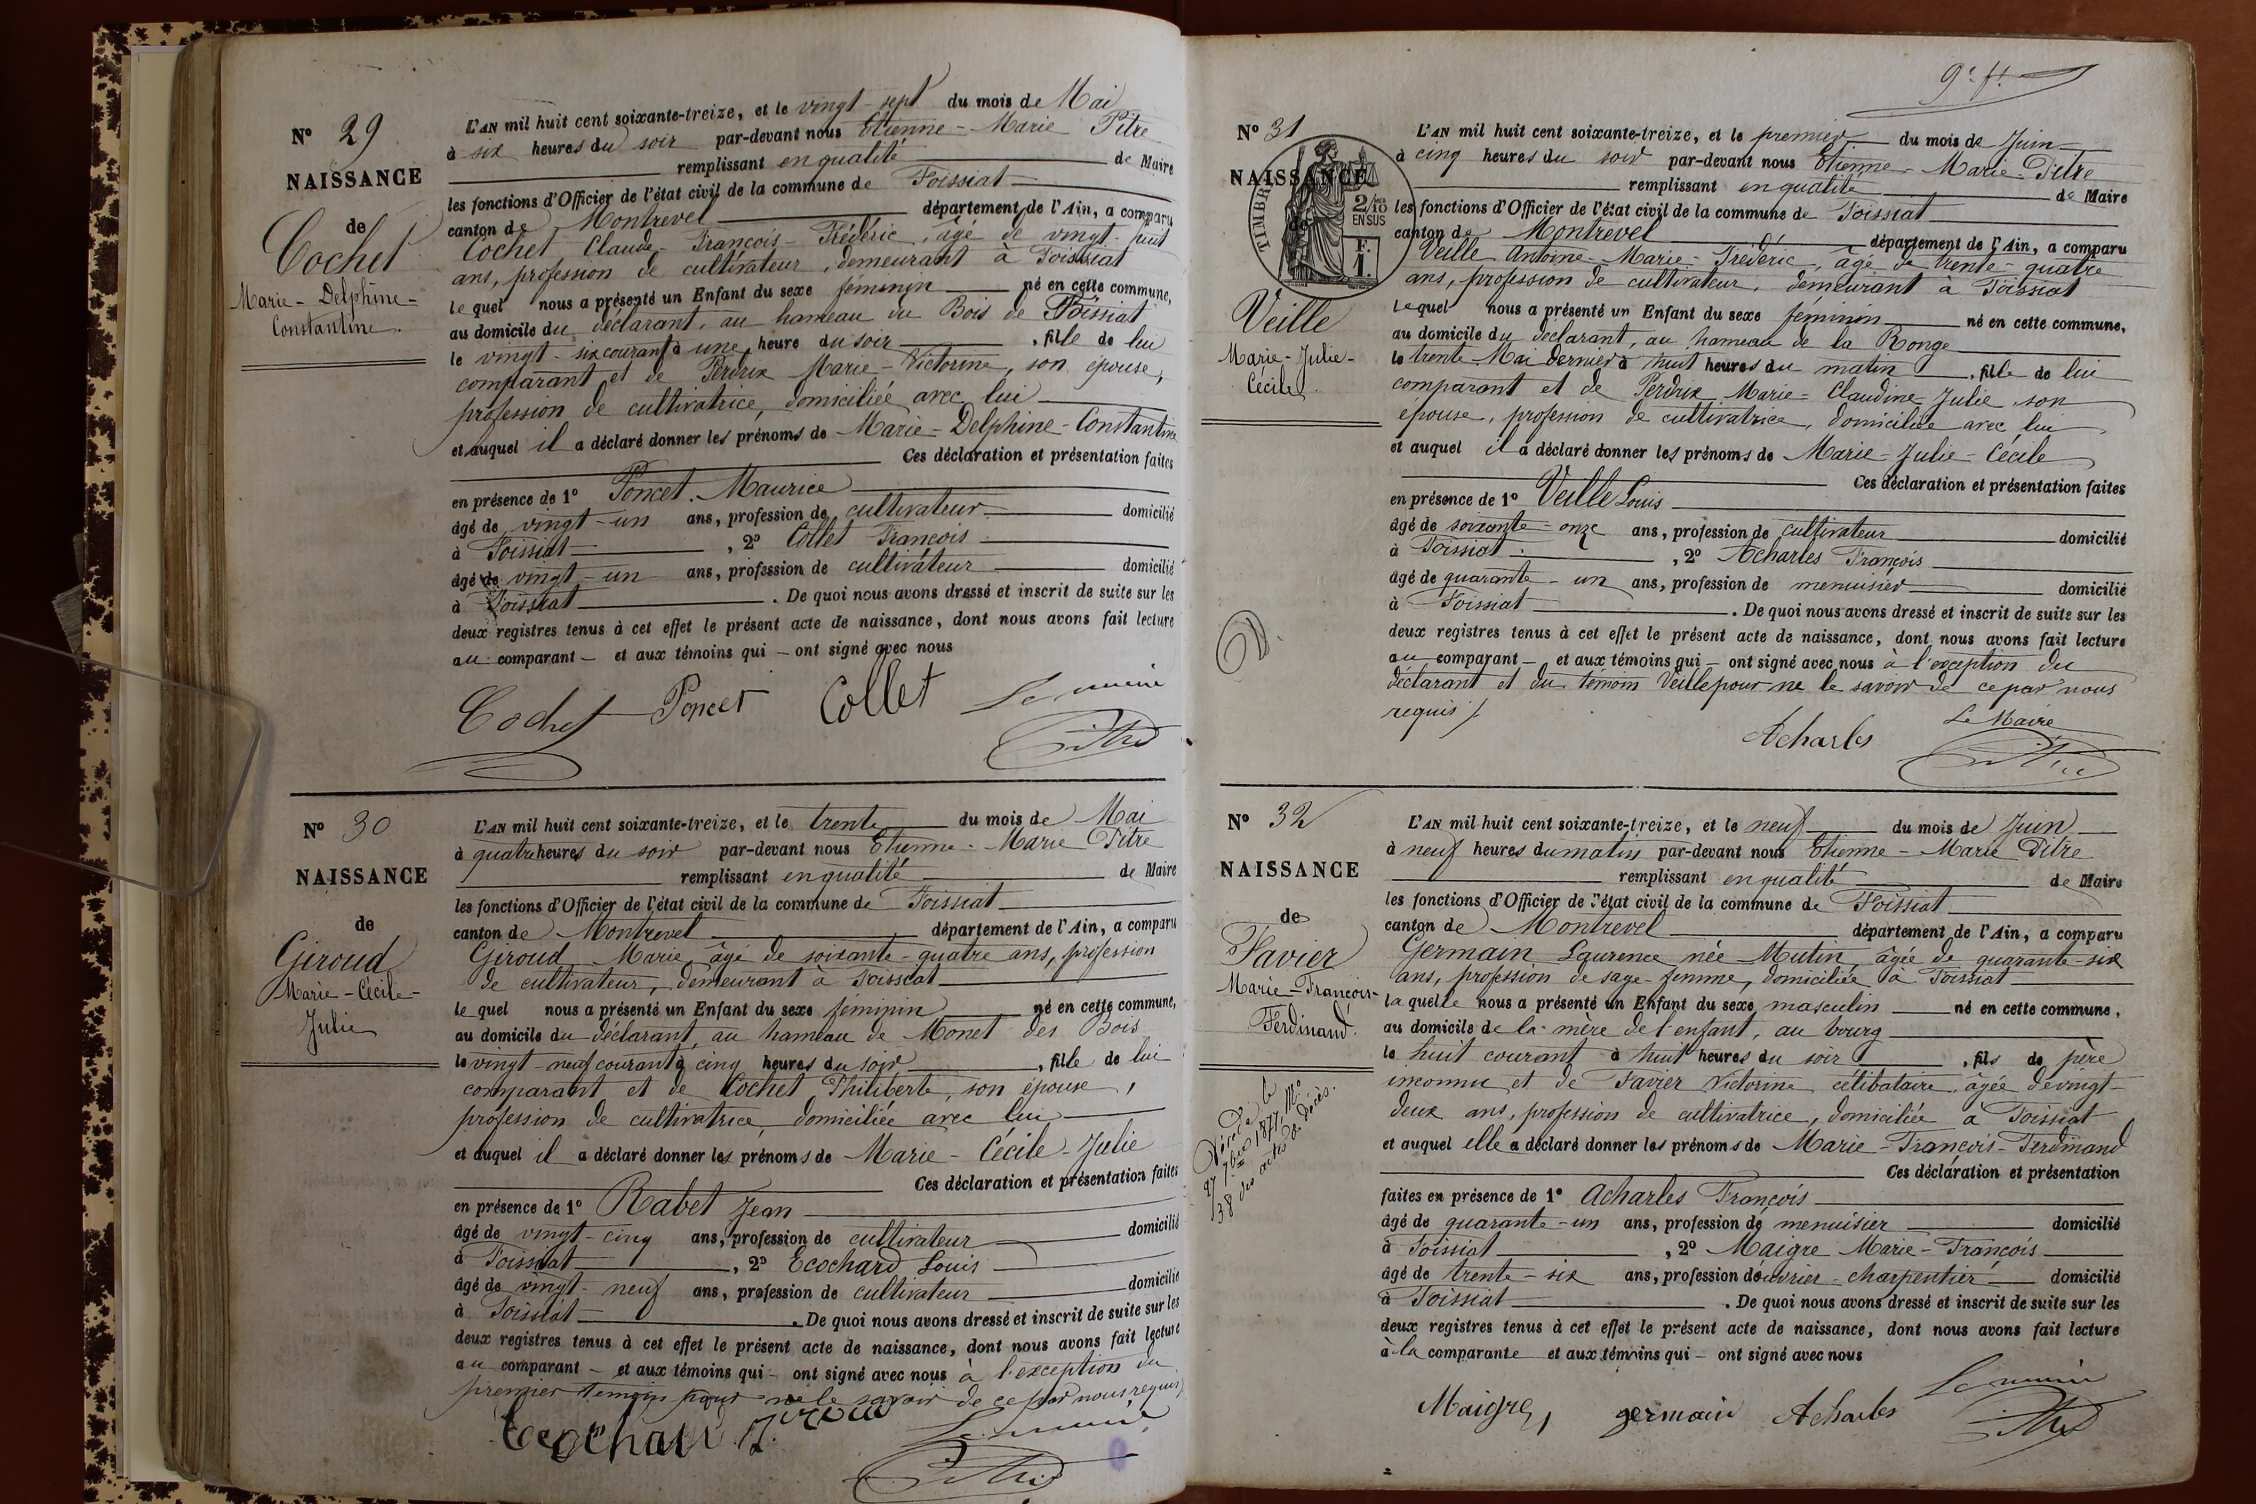 N° 29
NAISSANCE
de
Cochet
Marie - Delphine -
Constantine.
L'AN mil huit cent soixante-treize, et le vingt - sept du mois de Mai
à six heures du soir par-devant nous Etienne - Marie Pitre
remplissant en qualité de Maire
les fonctions d'Officier de l'état civil de la commune de Foissiat
canton de Montrevel département de l'Ain, a comparu
Cochet Claude - François - Frédéric, âgé de vingt - huit
ans, profession de cultivateur, demeurant à Foissiat
le quel nous a présenté un Enfant du sexe féminin né en cette commune,
au domicile du déclarant, au hameau du Bois de Foissiat
le vingt - six courant à une heure du soir, fille de lui
comparant et de Perdrix Marie - Victorine, son épouse,
profession de cultivatrice, domiciliée avec lui
et auquel il a déclaré donner les prénoms de Marie - Delphine - Constantine
Ces déclaration et présentation faites
en présence de 1° Poncet Maurice
âgé de vingt - un ans, profession de cultivateur domicilié
à Foissiat, 2° Collet François
âgé de vingt - un ans, profession de cultivateur domicilié
à Foissiat. De quoi nous avons dressé et inscrit de suite sur les
deux registres tenus à cet effet le présent acte de naissance, dont nous avons fait lecture
au comparant - et aux témoins qui - ont signé avec nous
Cochet Poncet Collet Le maire
Pitre
N° 30
NAISSANCE
de
Giroud
Marie - Cécile -
Julie
L'AN mil huit cent soixante-treize, et le trente du mois de Mai
à quatre heures du soir par-devant nous Etienne - Marie Pitre
remplissant en qualité de Maire
les fonctions d'Officier de l'état civil de la commune de Foissiat
canton de Montrevel département de l'Ain, a comparu
Giroud Marie âgé de soixante - quatre ans, profession
de cultivateur, demeurant à Foissiat
le quel nous a présenté un Enfant du sexe féminin né en cette commune,
au domicile du déclarant, au hameau de Monet des Bois
le vingt - neuf courant à cinq heures du soir, fille de lui
comparant et de Cochet Philiberte, son épouse,
profession de cultivatrice, domiciliée avec lui
et auquel il a déclaré donner les prénoms de Marie - Cécile - Julie
Ces déclaration et présentation faites
en présence de 1° Rabet Jean
âgé de vingt - cinq ans, profession de cultivateur domicilié
à Foissiat, 2° Ecochard Louis
âgé de vingt - neuf ans, profession de cultivateur domicilié
à Foissiat. De quoi nous avons dressé et inscrit de suite sur les
deux registres tenus à cet effet le présent acte de naissance, dont nous avons fait lecture
au comparant - et aux témoins qui - ont signé avec nous à l'exception du
premier témoin pour ne le savoir de ce par nous requis
Le maire
Pitre
9e ft.
N° 31
NAISSANCE
de
TIMBRE
2/10 EN SUS
F. 1.
Veille
Marie - Julie -
Cécile
L'AN mil huit cent soixante-treize, et le premier du mois de Juin
à cinq heures du soir par-devant nous Etienne - Marie - Pitre
remplissant en qualité de Maire
les fonctions d'Officier de l'état civil de la commune de Foissiat
canton de Montrevel département de l'Ain, a comparu
Veille Antoine - Marie - Frédéric, âgé de trente - quatre
ans, profession de cultivateur, demeurant à Foissiat
le quel nous a présenté un Enfant du sexe féminin né en cette commune,
au domicile du déclarant, au hameau de la Ronge
le trente Mai dernier à huit heures du matin, fille de lui
comparant et de Perdrix Marie - Claudine Julie son
épouse, profession de cultivatrice, domiciliée avec lui
et auquel il a déclaré donner les prénoms de Marie - Julie - Cécile
Ces déclaration et présentation faites
en présence de 1° Veille Louis
âgé de soixante - onze ans, profession de cultivateur domicilié
à Foissiat, 2° Acharles François
âgé de quarante - un ans, profession de menuisier domicilié
à Foissiat. De quoi nous avons dressé et inscrit de suite sur les
deux registres tenus à cet effet le présent acte de naissance, dont nous avons fait lecture
au comparant - et aux témoins qui - ont signé avec nous à l'exception du
déclarant et du témoin Veille pour ne le savoir de ce par nous
requis
Acharles Le Maire
Pitre
N° 32
NAISSANCE
de
Favier
Marie - François -
Ferdinand.
Décédé le
27 7bre 1877 N°
38 des actes de décès.
L'AN mil huit cent soixante-treize, et le neuf du mois de Juin
à neuf heures du matin par-devant nous Etienne - Marie Pitre
remplissant en qualité de Maire
les fonctions d'Officier de l'état civil de la commune de Foissiat
canton de Montrevel département de l'Ain, a comparu
Germain Laurence née Mutin, âgée de quarante - six
ans, profession de sage - femme, domiciliée à Foissiat
la quelle nous a présenté un Enfant du sexe masculin né en cette commune,
au domicile de la mère de l'enfant, au bourg
le huit courant à huit heures du soir, fils de père
inconnu et de Favier Victorine célibataire, âgée de vingt -
deux ans, profession de cultivatrice, domiciliée à Foissiat
et auquel elle a déclaré donner les prénoms de Marie - François - Ferdinand
Ces déclaration et présentation
faites en présence de 1° Acharles François
âgé de quarante - un ans, profession de menuisier domicilié
à Foissiat, 2° Maigre Marie - François
âgé de trente - six ans, profession d'ouvrier - charpentier domicilié
à Foissiat. De quoi nous avons dressé et inscrit de suite sur les
deux registres tenus à cet effet le présent acte de naissance, dont nous avons fait lecture
à la comparante et aux témoins qui - ont signé avec nous
Maigre, germain Acharles Le maire
Pitre